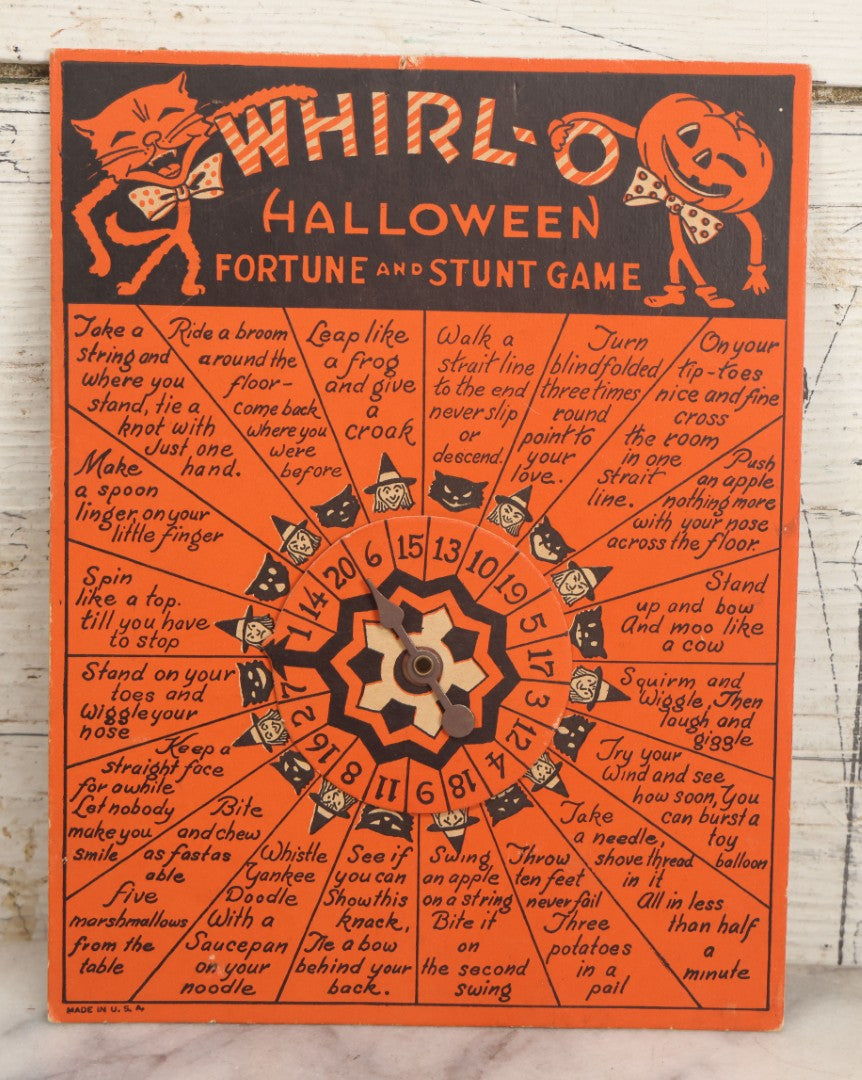 WHIRL-O
(HALLOWEEN)
FORTUNE AND STUNT GAME
Take a
string and
where you
stand, tie a
knot with
Just one
hand.
Ride a broom
around the
floor—
come back
where you
were
before
Leap like
a frog
and give
a
croak
Walk a
strait line
to the end
never slip
or
descend.
Turn
blindfolded
three times
round
point to
your
love.
On your
tip-toes
nice and fine
cross
the room
in one
strait
line.
Push
an apple
nothing more
with your nose
across the floor.
Stand
up and bow
And moo like
a cow
Squirm and
Wiggle, Then
laugh and
giggle
Try your
Wind and see
how soon, You
can burst a
toy
balloon
Take
a needle,
shove thread
in it
All in less
than half
a
minute
Throw
ten feet
never fail
Three
potatoes
in a
pail
Swing
an apple
on a string
Bite it
on
the second
swing
See if
you can
Show this
knack,
Tie a bow
behind your
back.
Whistle
Yankee
Doodle
With a
Saucepan
on your
noodle
Bite
and chew
as fast as
able
five
marshmallows
from the
table
Keep a
straight face
for awhile
Let nobody
make you
smile
Stand on your
toes and
Wiggle your
nose
Spin
like a top.
till you have
to stop
Make
a spoon
linger on your
little finger
6
15
13
10
19
5
17
3
12
4
18
9
11
8
16
2
7
1
14
20
MADE IN U.S.A.